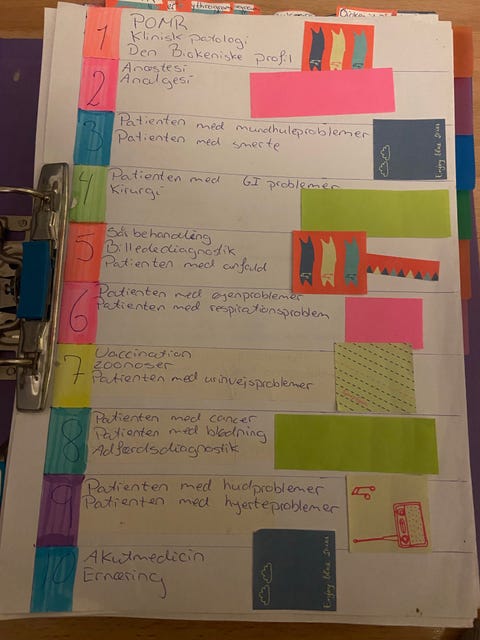 1
POMR
Klinisk patologi
Den Biokemiske profil
2
Anæstesi
Analgesi
3
Patienten med mundhuleproblemer
Patienten med smerte
Enjoy blue Skies
4
Patienten med GI problemer
Kirurgi
5
Sårbehandling
Billedediagnostik
Patienten med anfald
6
Patienten med øjenproblemer
Patienten med respirationsproblem
7
Vaccination
Zoonoser
Patienten med urinvejsproblemer
8
Patienten med cancer
Patienten med blødning
Adfærdsdiagnostik
9
Patienten med hudproblemer
Patienten med hjerteproblemer
10
Akutmedicin
Ernæring
Enjoy blue Skies